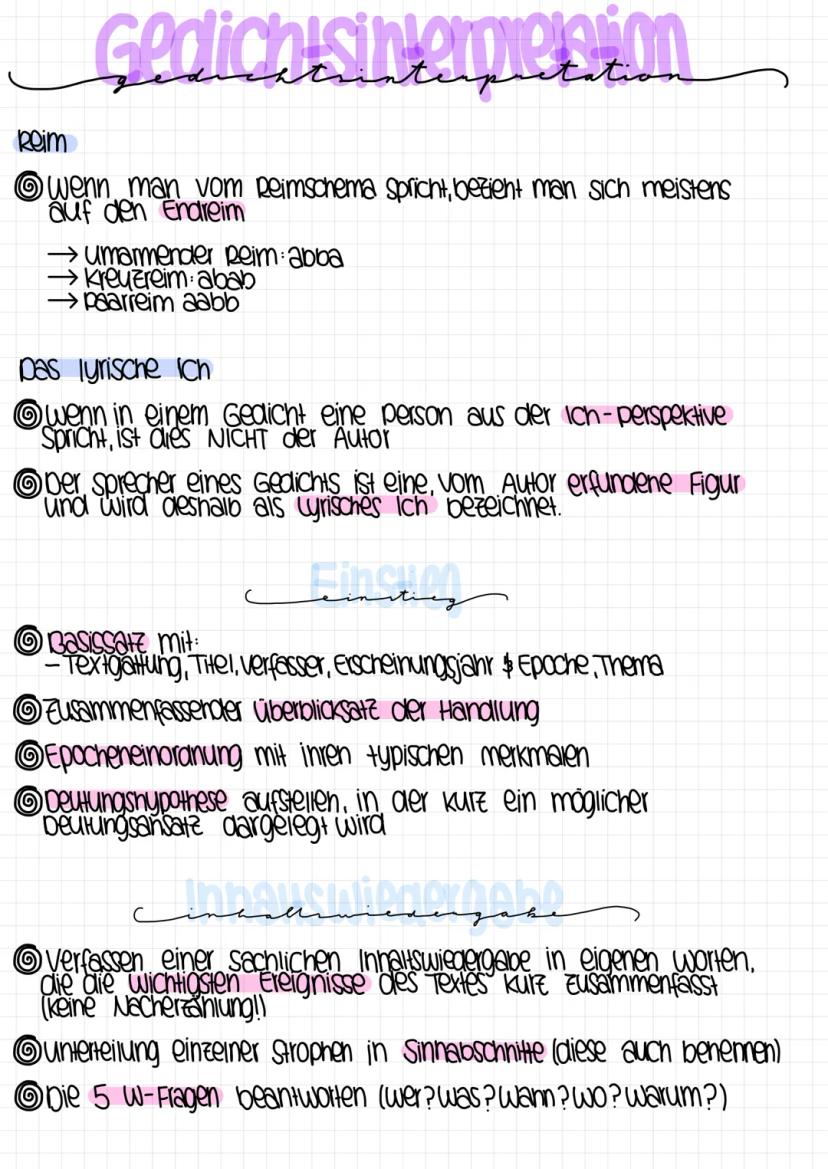 Gedichtsinterpretation
gedichtsinterpretation
Reim
Wenn man vom Reimschema spricht, bezieht man sich meistens
auf den Endreim
→ umarmender Reim: abba
→ Kreuzreim: abab
→ Paarreim aabb
Das lyrische Ich
Wenn in einem Gedicht eine Person aus der Ich-Perspektive
spricht, ist dies NICHT der Autor
Der Sprecher eines Gedichts ist eine, vom Autor erfundene Figur
und wird deshalb als Lyrisches Ich bezeichnet.
Einstieg
einstieg
Basissatz mit:
- Textgattung, Titel, Verfasser, Erscheinungsjahr & Epoche, Thema
Zusammenfassender Überblicksatz der Handlung
Epocheneinordnung mit ihren typischen Merkmalen
Deutungshypothese aufstellen, in der kurz ein möglicher
Deutungsansatz dargelegt wird
Inhaltswiedergabe
inhaltswiedergabe
Verfassen einer sachlichen Inhaltswiedergabe in eigenen Worten,
die die wichtigsten Ereignisse des Textes kurz zusammenfasst
(keine Nacherzählung!)
Unterteilung einzelner Strophen in Sinnabschnitte (diese auch benennen)
Die 5 W-Fragen beantworten (wer? was? wann? wo? warum?)